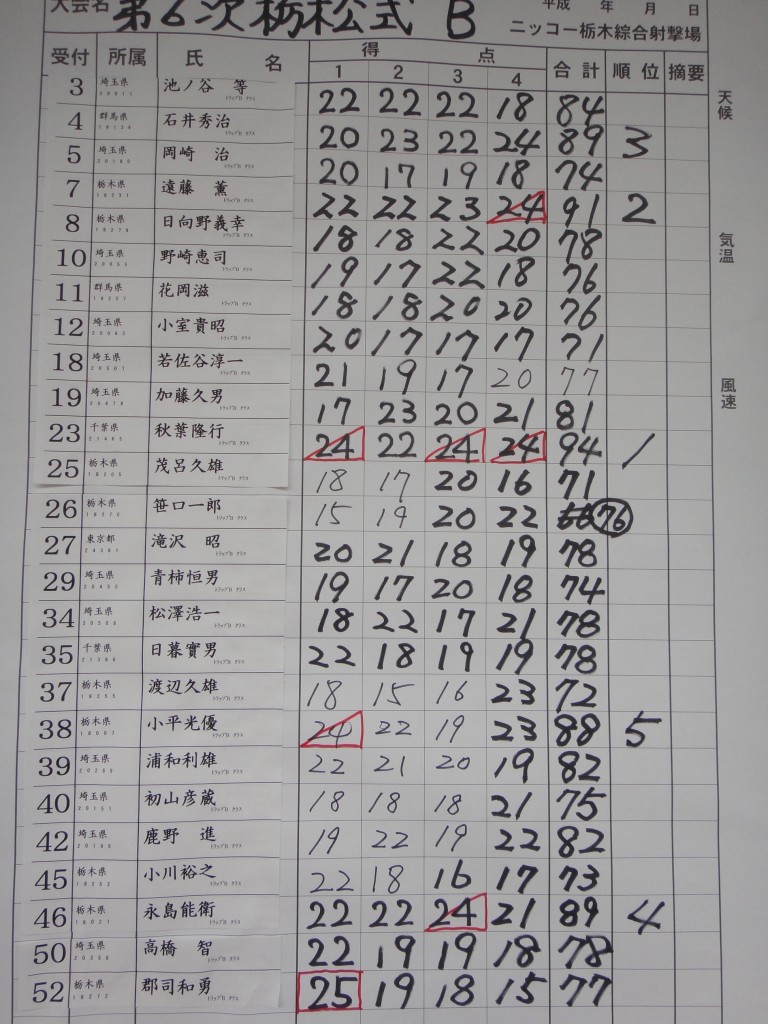 大会名 第6次栃松公式 B 平成 年 月 日
ニッコー栃木綜合射撃場
受付 所属 氏 名 得 点 合計 順位 摘要
1 2 3 4
3 埼玉県 池ノ谷 等 22 22 22 18 84
4 群馬県 石井秀治 20 23 22 24 89 3
5 埼玉県 岡崎 治 20 17 19 18 74
7 栃木県 遠藤 薫 22 22 23 24 91 2
8 栃木県 日向野義幸 18 18 22 20 78
10 埼玉県 野崎恵司 19 17 22 18 76
11 群馬県 花岡滋 18 18 20 20 76
12 埼玉県 小室貴昭 20 17 17 17 71
18 埼玉県 若佐谷淳一 21 19 17 20 77
19 埼玉県 加藤久男 17 23 20 21 81
23 千葉県 秋葉隆行 24 22 24 24 94 1
25 栃木県 茂呂久雄 18 17 20 16 71
26 栃木県 笹口一郎 15 19 20 22 76
27 東京都 滝沢 昭 20 21 18 19 78
29 埼玉県 青柿恒男 19 17 20 18 74
34 埼玉県 松澤浩一 18 22 17 21 78
35 千葉県 日暮實男 22 18 19 19 78
37 栃木県 渡辺久雄 18 15 16 23 72
38 栃木県 小平光優 24 22 19 23 88 5
39 埼玉県 浦和利雄 22 21 20 19 82
40 埼玉県 初山彦蔵 18 18 18 21 75
42 埼玉県 鹿野 進 19 22 19 22 82
45 栃木県 小川裕之 22 18 16 17 73
46 栃木県 永島能衛 22 22 24 21 89 4
50 埼玉県 高橋 智 22 19 19 18 78
52 栃木県 郡司和勇 25 19 18 15 77
天候
気温
風速